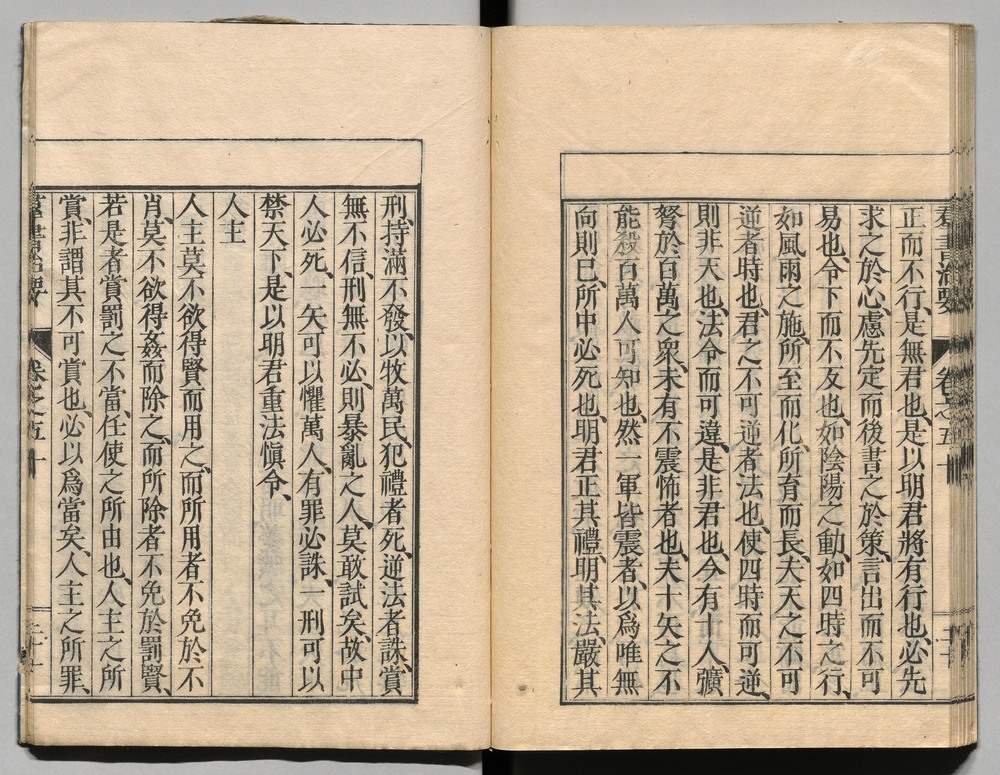 群書治要 卷之五十
正而不行、是無君也、是以明君將有行也、必先
求之於心、慮先定而後書之於策、言出而不可
易也、令下而不反也、如陰陽之動、如四時之行、
如風雨之施、所至而化、所育而長、夫天之不可
逆者時也、君之不可逆者法也、使四時而可逆、
則非天也、法令而可違、是非君也、今有十人、彍
弩於百萬之衆、未有不震怖者也、夫十矢之不
能殺百萬人可知也、然一軍皆震者、以爲唯無
向則已、所中必死也、明君正其禮、明其法、嚴其
刑、持滿不發、以牧萬民、犯禮者死、逆法者誅、賞
無不信、刑無不必、則暴亂之人、莫敢試矣、故中
人必死、一矢可以懼萬人、有罪必誅、一刑可以
禁天下、是以明君重法愼令、
人主
人主莫不欲得賢而用之、而所用者不免於不
肖、莫不欲得姦而除之、而所除者不免於罰賢、
若是者賞罰之不當、任使之所由也、人主之所
賞、非謂其不可賞也、必以爲當矣、人主之所罪、
群書治要 卷之五十